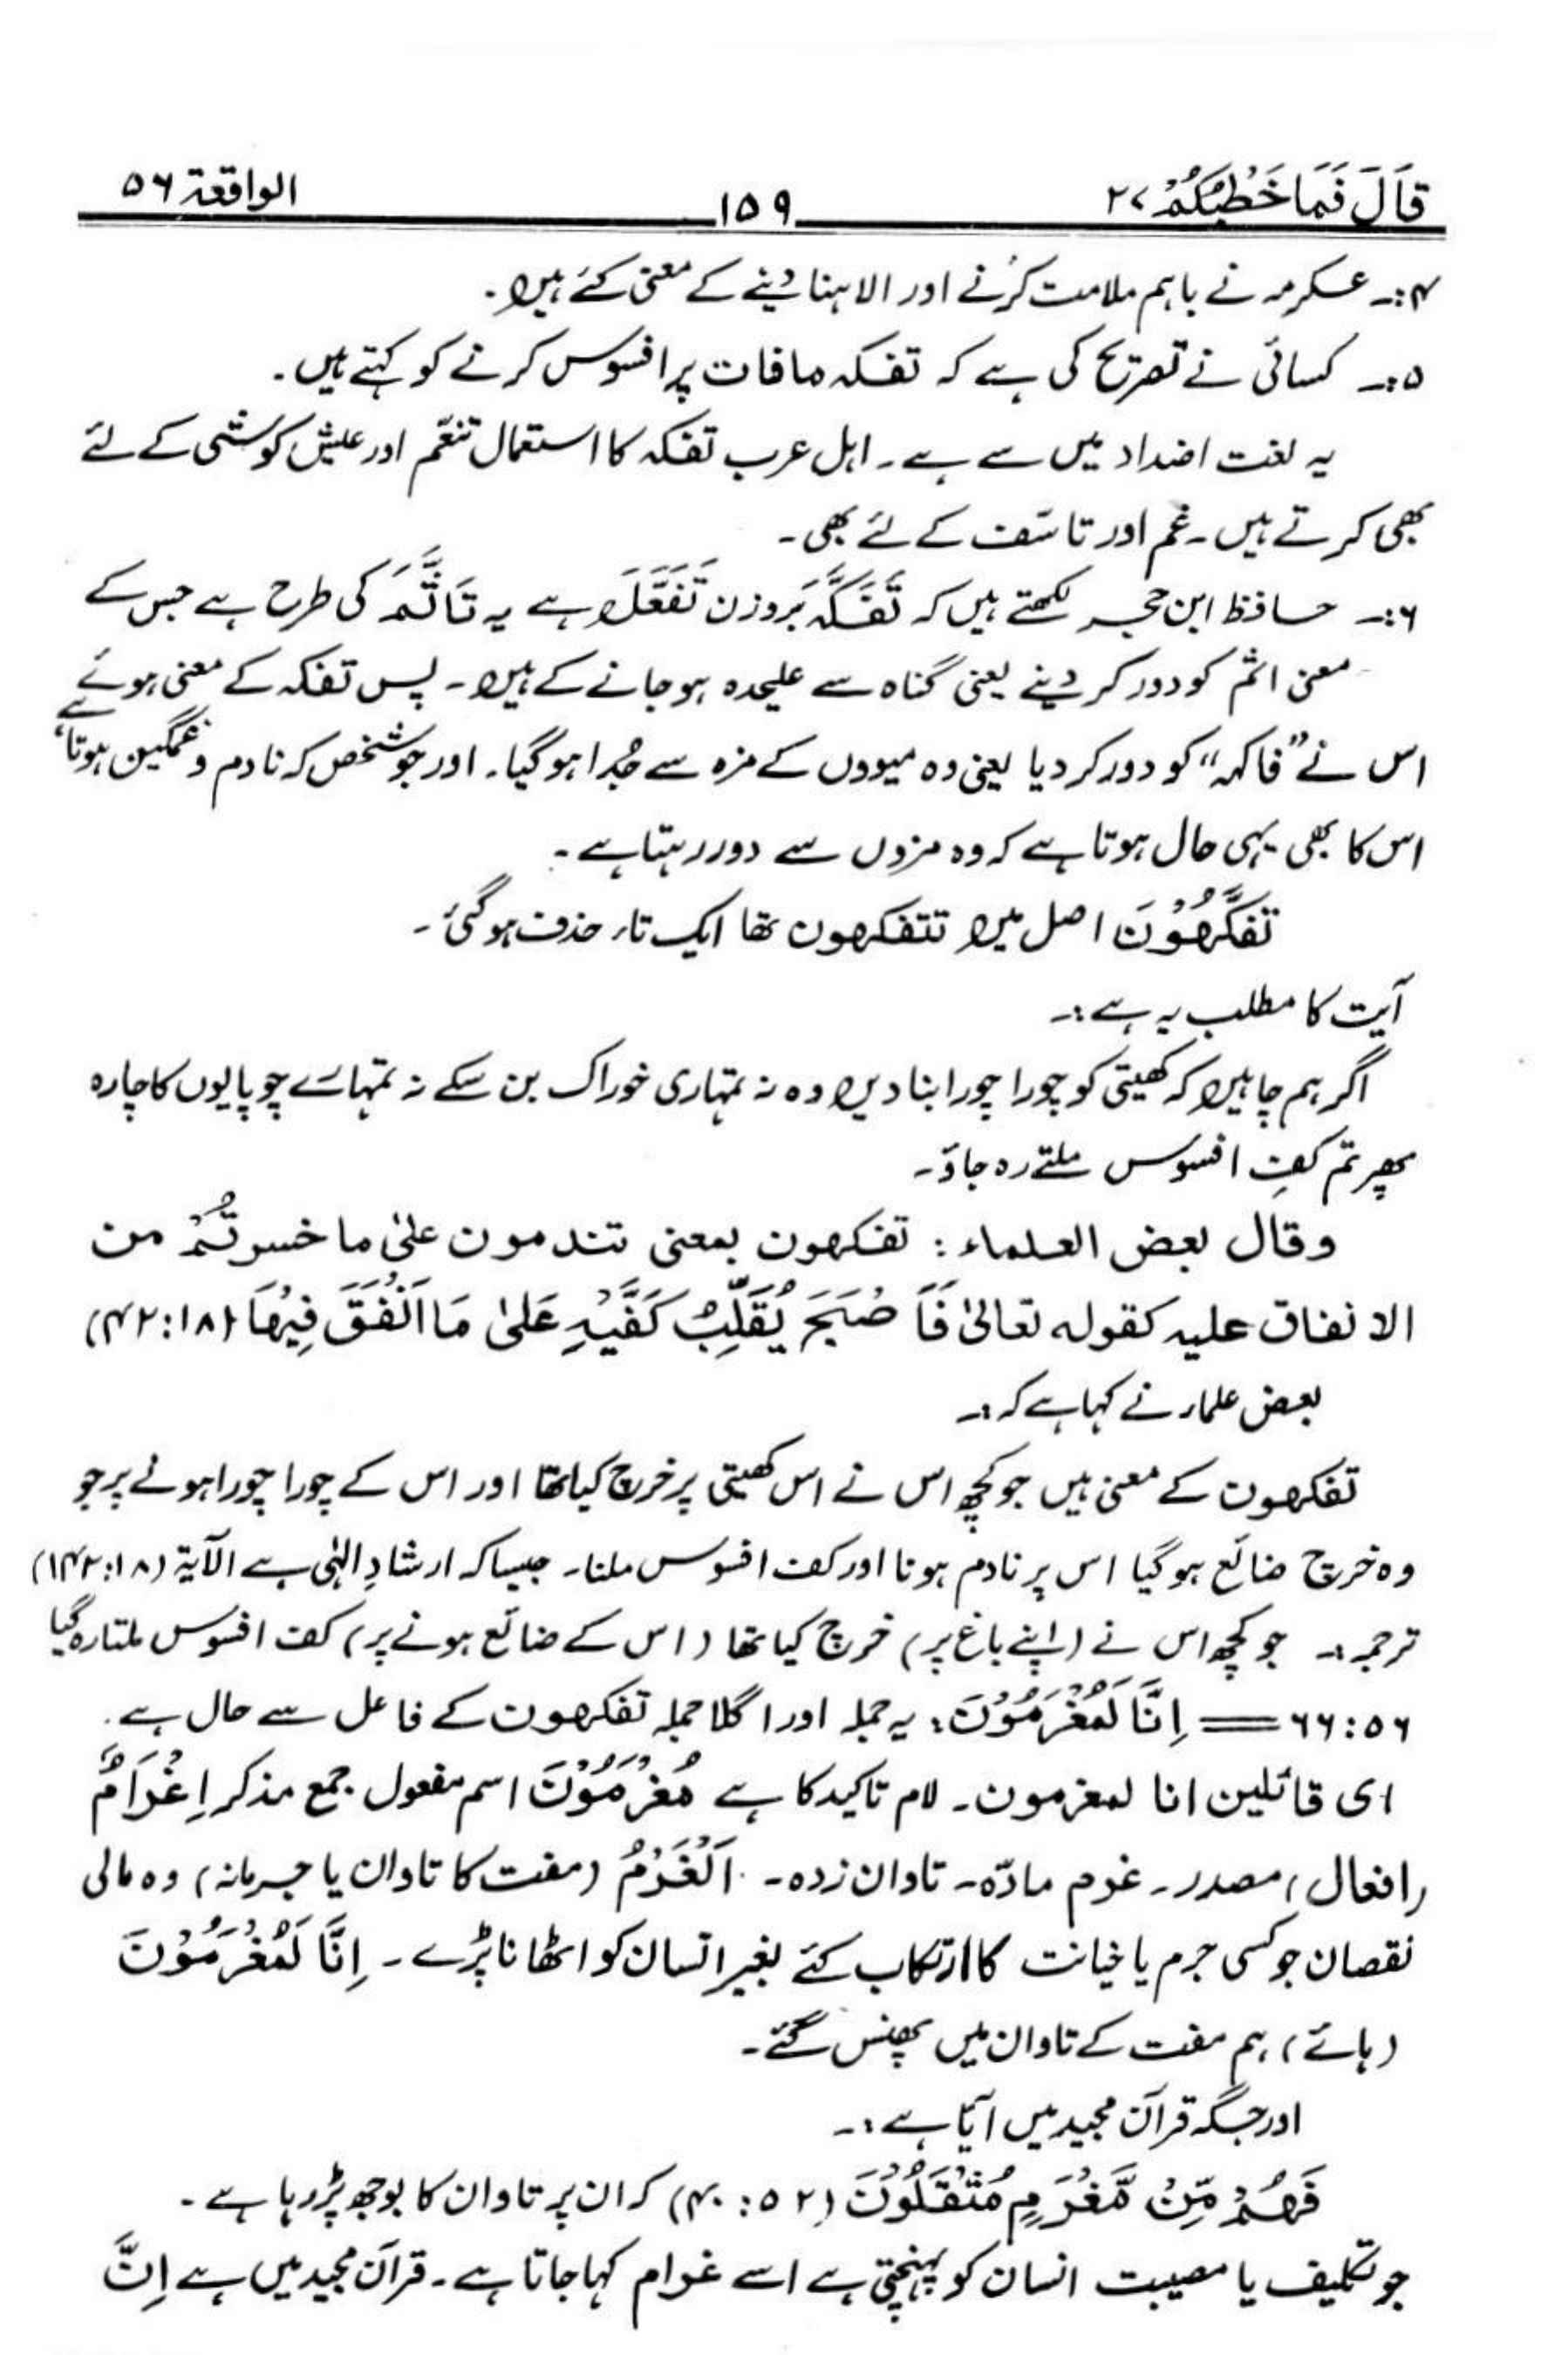 قَالَ فَمَا خَطْبُكُمْ ٢٧ ١٥٩ الواقعۃ ٥٦
۴:۔ عکرمہ نے باہم ملامت کرنے اور الاہنا دینے کے معنی کئے ہیں۔
۵:۔ کسائی نے تصریح کی ہے کہ تفکہ مافات پر افسوس کرنے کو کہتے ہیں۔
یہ لغت اضداد میں سے ہے۔ اہل عرب تفکہ کا استعمال تنعّم اور عیش کوشی کے لئے
بھی کرتے ہیں۔ غم اور تاسّف کے لئے بھی۔
۶:۔ حافظ ابن حجر لکھتے ہیں کہ تَفَكَّهَ بروزن تَفَعَّلَ ہے یہ تَأَثَّمَ کی طرح ہے جس کے
معنی اثم کو دور کر دینے یعنی گناہ سے علیحدہ ہو جانے کے ہیں۔ پس تفکہ کے معنی ہوئے
اس نے ”فاکہہ“ کو دور کر دیا یعنی وہ میووں کے مزہ سے جُدا ہو گیا۔ اور جو شخص کہ نادم و غمگین ہوتا ہے
اس کا بھی یہی حال ہوتا ہے کہ وہ مزوں سے دور رہتا ہے۔
تَفَكَّهُوْنَ اصل میں تتفکھون تھا ایک تاء حذف ہو گئی۔
آیت کا مطلب یہ ہے:۔
اگر ہم چاہیں کہ کھیتی کو چورا چورا بنا دیں وہ نہ تمہاری خوراک بن سکے نہ تمہارے چوپایوں کا چارہ
پھر تم کفِ افسوس ملتے رہ جاؤ۔
وقال بعض العلماء: تفکھون بمعنی تندمون علیٰ ما خسرتُمْ من
الانفاق علیہ کقولہ تعالیٰ فَأَصْبَحَ يُقَلِّبُ كَفَّيْهِ عَلىٰ مَا اَنْفَقَ فِيْهَا (١٨:۴٢)
بعض علماء نے کہا ہے کہ:۔
تفکھون کے معنی ہیں جو کچھ اس نے اس کھیتی پر خرچ کیا تھا اور اس کے چورا چورا ہونے پر جو
وہ خرچ ضائع ہو گیا اس پر نادم ہونا اور کف افسوس ملنا۔ جیسا کہ ارشادِ الہٰی ہے الآیۃ (١٨:١۴٢)
ترجمہ:۔ جو کچھ اس نے (اپنے باغ پر) خرچ کیا تھا (اس کے ضائع ہونے پر) کف افسوس ملتا رہ گیا
٥٦:٦٦ == اِنَّا لَمُغْرَمُوْنَ: یہ جملہ اور اگلا جملہ تفکھون کے فاعل سے حال ہے۔
ای قائلین انا لمغرمون۔ لام تاکید کا ہے مُغْرَمُوْنَ اسم مفعول جمع مذکر اِغْرَامٌ
(افعال) مصدر۔ غرم مادّہ۔ تاوان زدہ۔ اَلْغُرْمُ (مفت کا تاوان یا جرمانہ) وہ مالی
نقصان جو کسی جرم یا خیانت کا ارتکاب کئے بغیر انسان کو اٹھانا پڑے۔ اِنَّا لَمُغْرَمُوْنَ
(ہائے) ہم مفت کے تاوان میں پھنس گئے۔
اور جگہ قرآن مجید میں آیا ہے:۔
فَهُمْ مِّنْ مَّغْرَمٍ مُّثْقَلُوْنَ (٥٢:۴٠) کہ ان پر تاوان کا بوجھ پڑ رہا ہے۔
جو تکلیف یا مصیبت انسان کو پہنچتی ہے اسے غرام کہا جاتا ہے۔ قرآن مجید میں ہے اِنَّ